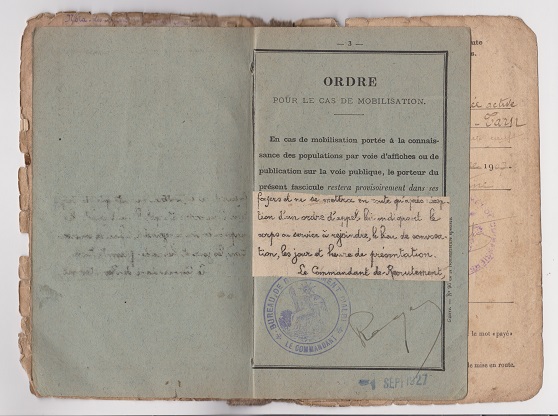 — 3 —
ORDRE
POUR LE CAS DE MOBILISATION.
En cas de mobilisation portée à la connais-
sance des populations par voie d'affiches ou de
publication sur la voie publique, le porteur du
présent fascicule restera provisoirement dans ses
foyers et ne se mettra en route qu'après récep-
tion d'un ordre d'appel lui indiquant le
corps ou service à rejoindre, le lieu de convoca-
tion, les jour et heure de présentation.
Le Commandant de Recrutement,
BUREAU DE
LE COMMANDANT
SEPT 1927
active
le mot «payé»
de mise en route.